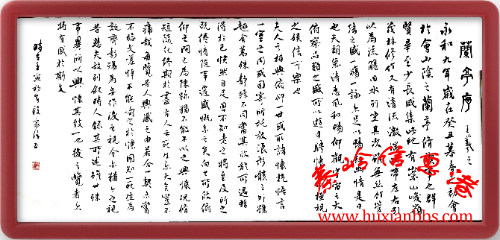 蘭亭序 王羲之
永和九年歲在癸丑暮春之初會
於會山陰之蘭亭脩禊事也群
賢畢至少長咸集此地有崇山峻嶺
茂林修竹又有清流激湍映帶左右引
以為流觴曲水列坐其次雖無絲竹管
弦之盛一觴一詠亦足以暢敘幽情是日
也天朗氣清惠風和暢仰觀宇宙之大
俯察品類之盛所以遊目騁懷足以極視
之娛信可樂也
夫人之相與俯仰一世或取諸懷抱悟言
一室之內或因寄所託放浪形骸之外雖
趣舍萬殊靜躁不同當其欣於所遇暫
得於己快然自足不知老之將至及其所之
既倦情隨事遷感慨係之矣向之所欣俛
仰之間已為陳跡猶不能不以之興懷況脩
短隨化終期於盡古人云死生亦大矣豈不
痛哉每覽昔人興感之由若合一契未嘗
不臨文嗟悼不能喻之於懷固知一死生為
虛誕齊彭殤為妄作後之視今亦猶今之視
昔悲夫故列敘時人錄其所述雖世殊
事異所以興懷其致一也後之覽者亦
將有感於斯文
www.huxianbbs.com